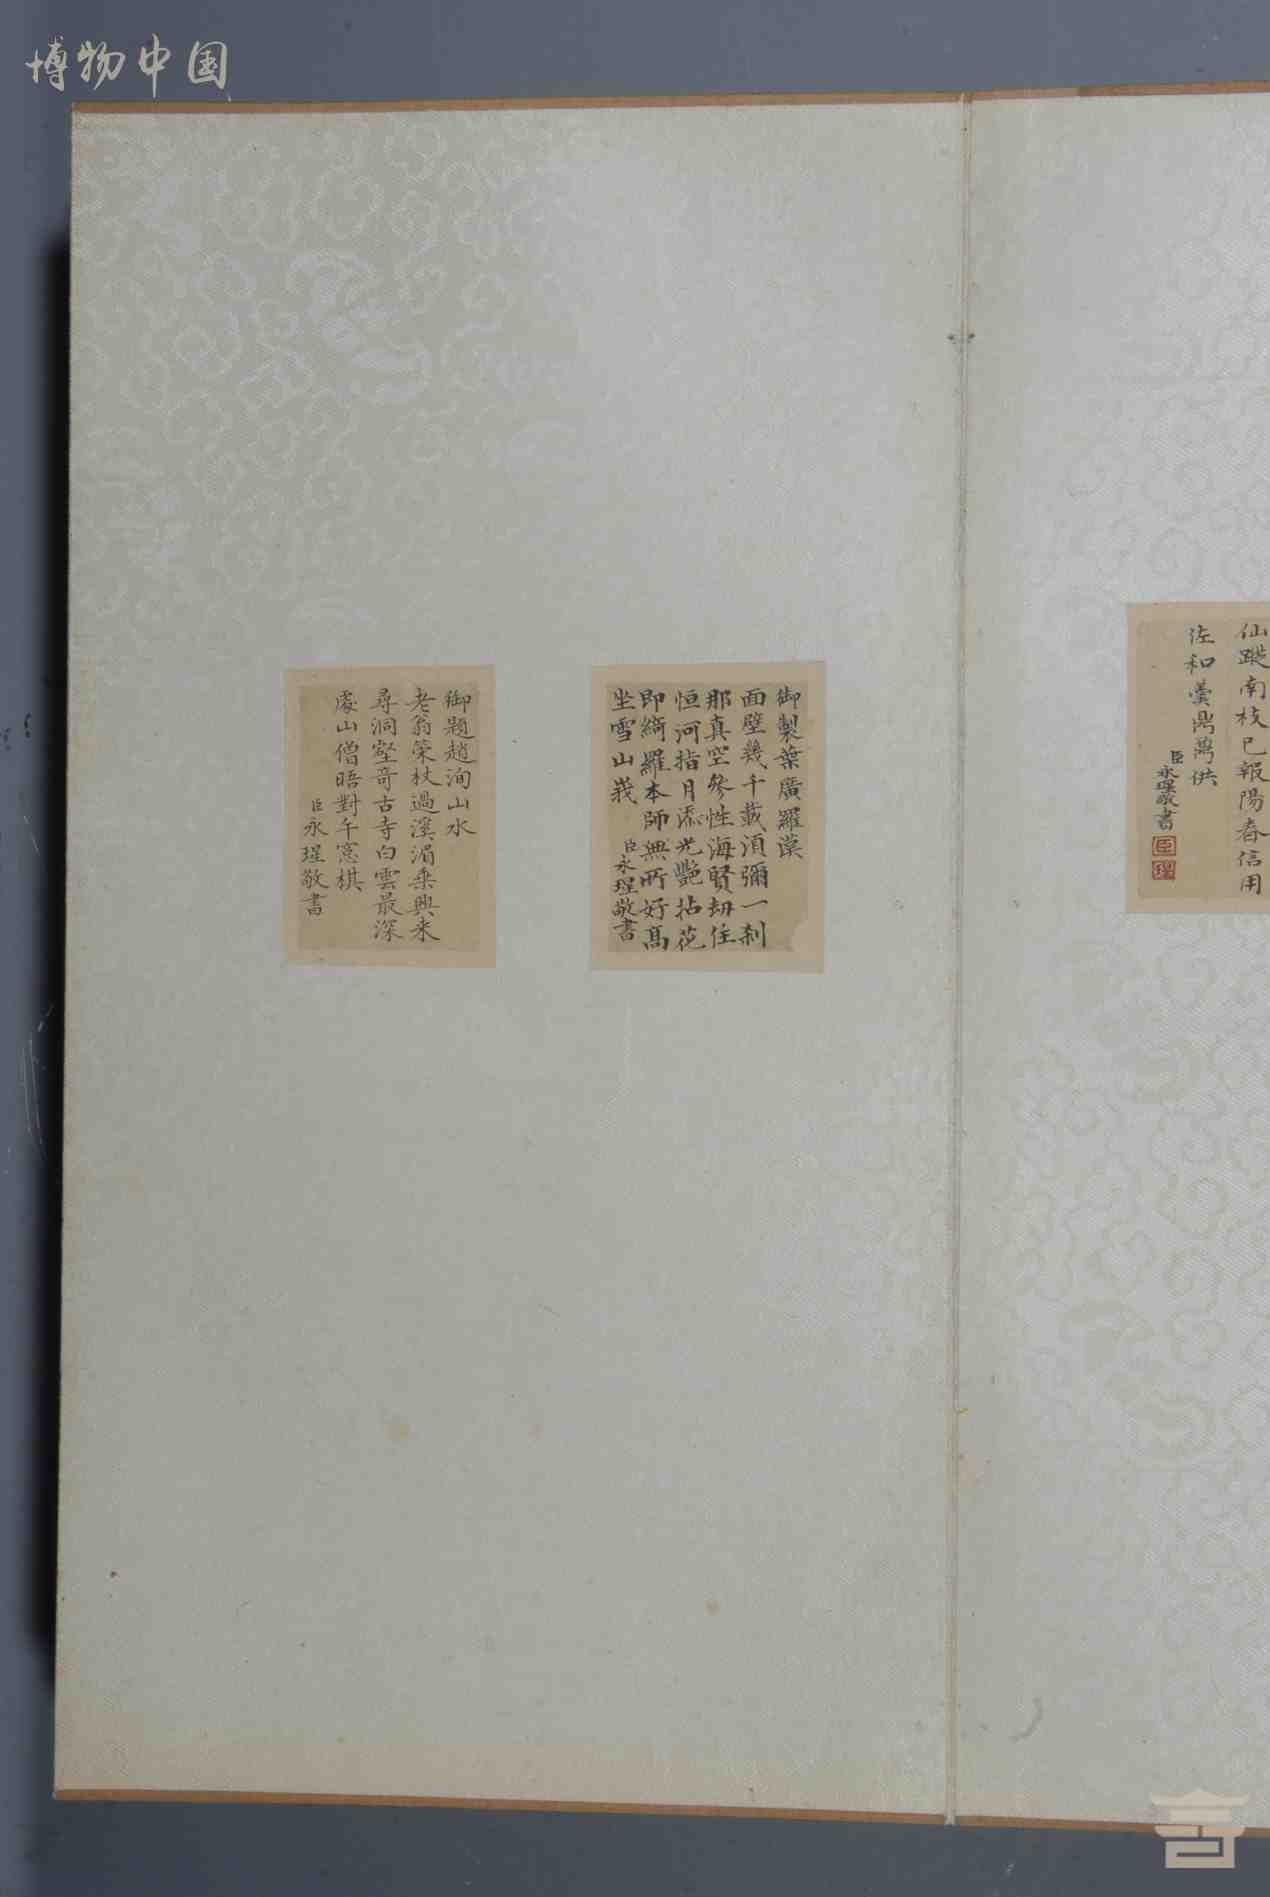 博物中国
仙蹤南枝已報陽春信用
佐和羹鼎薦供
臣永瑆敬書
御製葉廣羅漢
面壁幾千載須彌一刹
那真空參性海賢劫住
恒河指月添光艷拈花
即綺羅本師無所好高
坐雪山峩
臣永瑆敬書
御題趙洵山水
老翁策杖過溪湄乗興来
尋洞壑竒古寺白雲最深
處山僧晤對午窓棋
臣永瑆敬書